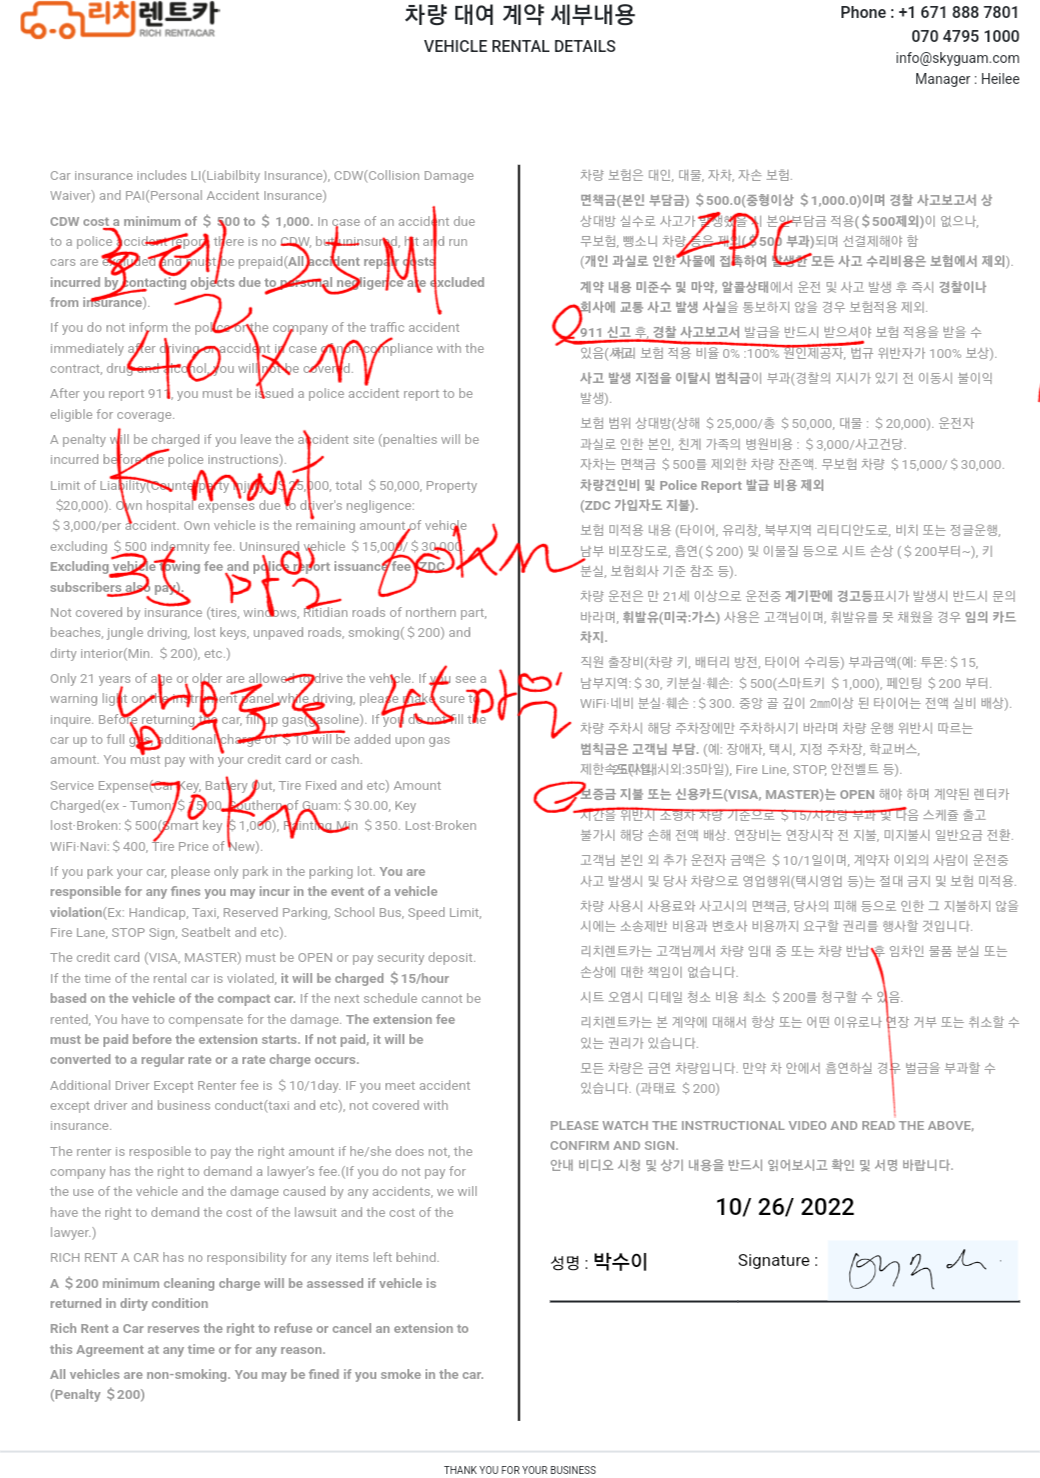 리치렌트카
RICH RENTACAR
차량 대여 계약 세부내용
VEHICLE RENTAL DETAILS
Phone : +1 671 888 7801
070 4795 1000
info@skyguam.com
Manager : Heilee
Car insurance includes LI(Liabilbity Insurance), CDW(Collision Damage
Waiver) and PAI(Personal Accident Insurance)
CDW cost a minimum of $ 500 to $ 1,000. In case of an accident due
to a police accident report, there is no CDW, but uninsured, hit and run
cars are excluded and must be prepaid(All accident repair costs
incurred by contacting objects due to personal negligence are excluded
from insurance).
If you do not inform the police or the company of the traffic accident
immediately after driving or accident in case of non-compliance with the
contract, drug and alcohol, you will not be covered.
After you report 911, you must be issued a police accident report to be
eligible for coverage.
A penalty will be charged if you leave the accident site (penalties will be
incurred before the police instructions).
Limit of Liability(Counterparty injury : $ 25,000, total $ 50,000, Property
$20,000). Own hospital expenses due to driver's negligence:
$ 3,000/per accident. Own vehicle is the remaining amount of vehicle
excluding $ 500 indemnity fee. Uninsured vehicle $ 15,000/ $ 30,000.
Excluding vehicle towing fee and police report issuance fee (ZDC
subscribers also pay).
Not covered by insurance (tires, windows, Ritidian roads of northern part,
beaches, jungle driving, lost keys, unpaved roads, smoking( $ 200) and
dirty interior(Min. $ 200), etc.)
Only 21 years of age or older are allowed to drive the vehicle. If you see a
warning light on the instrument panel while driving, please make sure to
inquire. Before returning the car, fill up gas(gasoline). If you do not fill the
car up to full gas, additional charge of $ 10 will be added upon gas
amount. You must pay with your credit card or cash.
Service Expense(Car Key, Battery Out, Tire Fixed and etc) Amount
Charged(ex - Tumon: $ 15.00, Southern of Guam: $ 30.00, Key
lost·Broken: $ 500(Smart key $ 1,000), Painting Min $ 350. Lost·Broken
WiFi·Navi: $ 400, Tire Price of New).
If you park your car, please only park in the parking lot. You are
responsible for any fines you may incur in the event of a vehicle
violation(Ex: Handicap, Taxi, Reserved Parking, School Bus, Speed Limit,
Fire Lane, STOP Sign, Seatbelt and etc).
The credit card (VISA, MASTER) must be OPEN or pay security deposit.
If the time of the rental car is violated, it will be charged $ 15/hour
based on the vehicle of the compact car. If the next schedule cannot be
rented, You have to compensate for the damage. The extension fee
must be paid before the extension starts. If not paid, it will be
converted to a regular rate or a rate charge occurs.
Additional Driver Except Renter fee is $ 10/1day. IF you meet accident
except driver and business conduct(taxi and etc), not covered with
insurance.
The renter is resposible to pay the right amount if he/she does not, the
company has the right to demand a lawyer's fee.(If you do not pay for
the use of the vehicle and the damage caused by any accidents, we will
have the right to demand the cost of the lawsuit and the cost of the
lawyer.)
RICH RENT A CAR has no responsibility for any items left behind.
A $ 200 minimum cleaning charge will be assessed if vehicle is
returned in dirty condition
Rich Rent a Car reserves the right to refuse or cancel an extension to
this Agreement at any time or for any reason.
All vehicles are non-smoking. You may be fined if you smoke in the car.
(Penalty $ 200)
호텔 25M
40Km
K mart
35 마일 60Km
남부도로 45마일
70Km
차량 보험은 대인, 대물, 자차, 자손 보험.
면책금(본인 부담금) $ 500.0(중형이상 $ 1,000.0)이며 경찰 사고보고서 상
상대방 실수로 사고가 발생했을 시 본인부담금 적용( $ 500제외)이 없으나,
무보험, 뺑소니 차량 등은 제외( $ 500 부과)되며 선결제해야 함
(개인 과실로 인한 사물에 접촉하여 발생한 모든 사고 수리비용은 보험에서 제외).
ZDC
계약 내용 미준수 및 마약, 알콜상태에서 운전 및 사고 발생 후 즉시 경찰이나
회사에 교통 사고 발생 사실을 통보하지 않을 경우 보험적용 제외.
911 신고 후, 경찰 사고보고서 발급을 반드시 받으셔야 보험 적용을 받을 수
있음(사고 보험 적용 비율 0% :100% 원인제공자, 법규 위반자가 100% 보상).
사고 발생 지점을 이탈시 범칙금이 부과(경찰의 지시가 있기 전 이동시 불이익
발생).
보험 범위 상대방(상해 $ 25,000/총 $ 50,000, 대물 : $ 20,000). 운전자
과실로 인한 본인, 친계 가족의 병원비용 : $ 3,000/사고건당.
자차는 면책금 $ 500를 제외한 차량 잔존액. 무보험 차량 $ 15,000/ $ 30,000.
차량견인비 및 Police Report 발급 비용 제외
(ZDC 가입자도 지불).
보험 미적용 내용 (타이어, 유리창, 북부지역 리티디안도로, 비치 또는 정글운행,
남부 비포장도로, 흡연( $ 200) 및 이물질 등으로 시트 손상 ( $ 200부터~), 키
분실, 보험회사 기준 참조 등).
차량 운전은 만 21세 이상으로 운전중 계기판에 경고등표시가 발생시 반드시 문의
바라며, 휘발유(미국:가스) 사용은 고객님이며, 휘발유를 못 채웠을 경우 임의 카드
차지.
직원 출장비(차량 키, 배터리 방전, 타이어 수리등) 부과금액(예: 투몬: $ 15,
남부지역: $ 30, 키분실·훼손: $ 500(스마트키 $ 1,000), 페인팅 $ 200 부터.
WiFi·네비 분실·훼손 : $ 300. 중앙 골 깊이 2㎜이상 된 타이어는 전액 실비 배상).
차량 주차시 해당 주차장에만 주차하시기 바라며 차량 운행 위반시 따르는
범칙금은 고객님 부담. (예: 장애자, 택시, 지정 주차장, 학교버스,
제한속도(시내:25마일/시외:35마일), Fire Line, STOP, 안전벨트 등).
보증금 지불 또는 신용카드(VISA, MASTER)는 OPEN 해야 하며 계약된 렌터카
시간을 위반시 소형차 차량 기준으로 $ 15/시간당 부과 및 다음 스케쥴 출고
불가시 해당 손해 전액 배상. 연장비는 연장시작 전 지불, 미지불시 일반요금 전환.
고객님 본인 외 추가 운전자 금액은 $ 10/1일이며, 계약자 이외의 사람이 운전중
사고 발생시 및 당사 차량으로 영업행위(택시영업 등)는 절대 금지 및 보험 미적용.
차량 사용시 사용료와 사고시의 면책금, 당사의 피해 등으로 인한 그 지불하지 않을
시에는 소송제반 비용과 변호사 비용까지 요구할 권리를 행사할 것입니다.
리치렌트카는 고객님께서 차량 임대 중 또는 차량 반납 후 임차인 물품 분실 또는
손상에 대한 책임이 없습니다.
시트 오염시 디테일 청소 비용 최소 $ 200를 청구할 수 있음.
리치렌트카는 본 계약에 대해서 항상 또는 어떤 이유로나 연장 거부 또는 취소할 수
있는 권리가 있습니다.
모든 차량은 금연 차량입니다. 만약 차 안에서 흡연하실 경우 벌금을 부과할 수
있습니다. (과태료 $ 200)
PLEASE WATCH THE INSTRUCTIONAL VIDEO AND READ THE ABOVE,
CONFIRM AND SIGN.
안내 비디오 시청 및 상기 내용을 반드시 읽어보시고 확인 및 서명 바랍니다.
10/ 26/ 2022
성명 : 박수이
Signature :
THANK YOU FOR YOUR BUSINESS